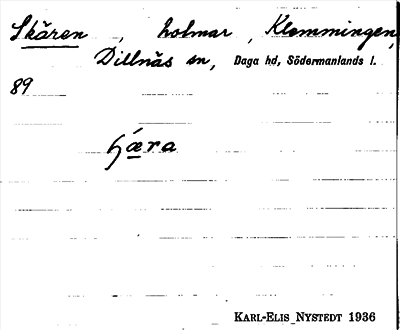 Skären, holmar, Klemmingen,
Dillnäs sn, Daga hd, Södermanlands l.
89
KARL-ELIS NYSTEDT 1936